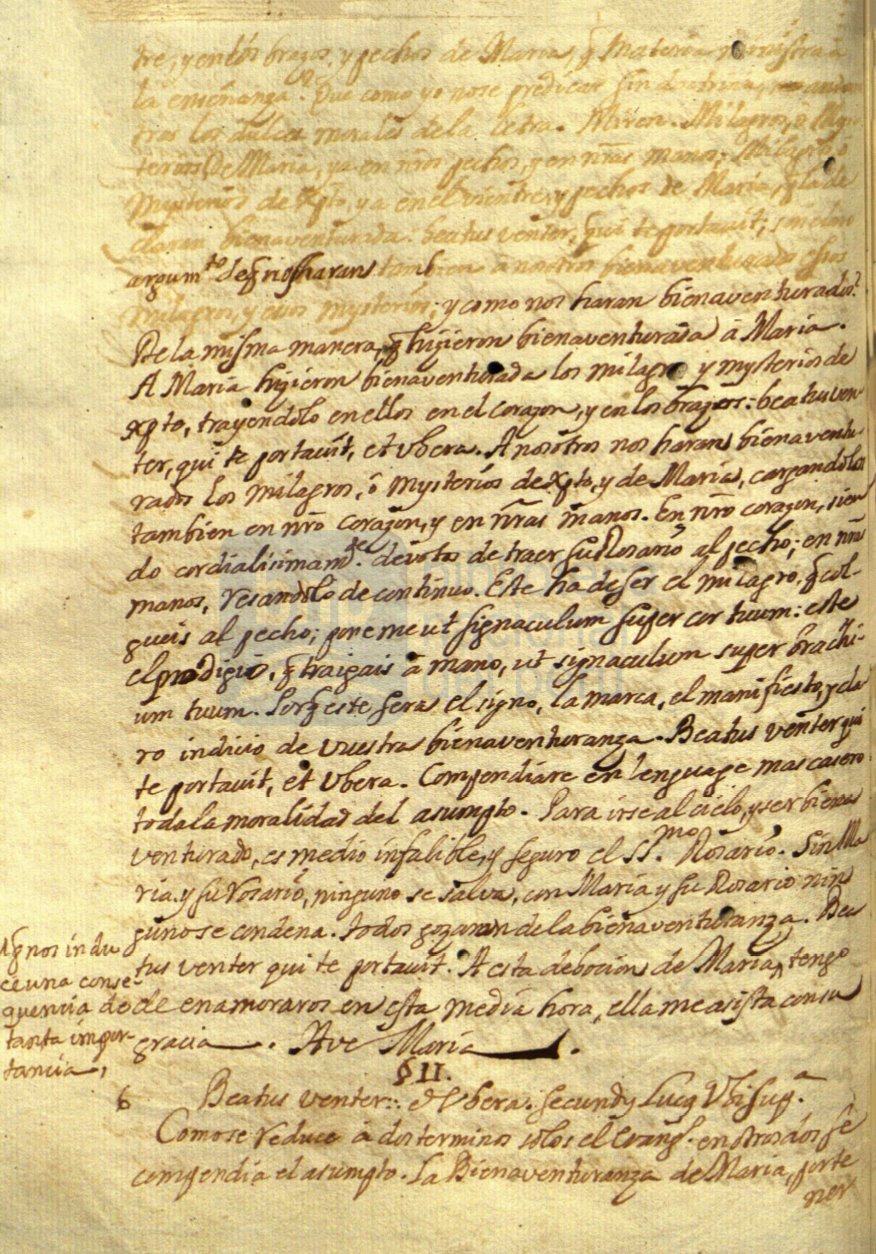 tre, y en los brazos, y pechos de Maria, q̃ materia ministra a
la enseñanza. Que como yo no se predicar sin doctrina,
tras los dulces morales de la letra. Miren. Milagros, o Mys-
terios De Maria, ya en nr̃os pechos, y en nr̃as manos; Milagros, o
Mysterios de Xpto, ya en el vientre, y pechos de Maria, q̃ la de
claran bienaventurada. beatus venter, qui te portavit;
argum.to de q̃ nos haran tambien a nosotros bienaventurados esos
Milagros, y esos mysterios; y como nos haran bienaventurados?
De la misma manera, q̃ hizieron bienaventurada â Maria.
A Maria hizieron bienaventurada los milagros y mysterios de
Xpto, trayendolo en ellos en el corazon, y en los brazos: beatus ven-
ter, qui te portauit, et vbera. A nosotros nos haran bienaventu-
rados los milagros, ô mysterios de Xpto, y de Maria, cargandolos
tambien en nr̃o corazon, y en nr̃as manos. En nr̃o corazon, sien
do cordialisimam.te devotos de traer su Rosario al pecho; en nr̃as
manos, resandolo de continuo. Este ha de ser el milagro, q̃ col-
gueis al pecho; pone me ut signaculum super cor tuum: este
el prodigio, q̃ traigais â mano, ut signaculum super brachi-
um tuum. Porq̃ este sera el signo, la marca, el manifiesto, y cla
ro indicio de vuestra bienaventuranza. Beatus venter qui
te portavit, et vbera. Compendiare en lenguage mas casero
toda la moralidad del asumpto. Para irse al cielo, y ser biena
venturado, es medio infalible, y seguro el SS.mo Rosario. Sin Ma
ria y su rosario, ninguno se salva, con Maria y su Rosario nin
guno se condena. todos gozaran de la bienaventuranza. Bea
tus venter qui te portauit. A esta deboción de Maria, tengo
de enamoraros en esta media hora, ella me asista con su
gracia. Ave Maria.
A q̃ nos indu
ce una conse-
quencia de
tanta impor-
tancia,
§ II.
6 Beatus venter:. & Vbera. secundũ Lucã Vbi sup.a
Como se reduce â dos terminos solos el Evang.o en otros dos se
compendia el asumpto. La Bienaventuranza de Maria, por te
ner